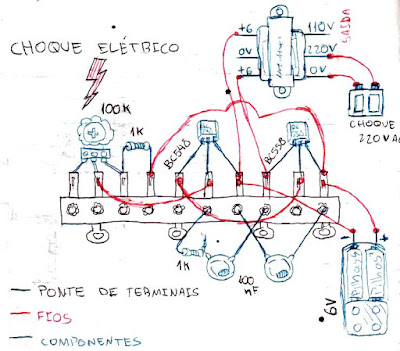 CHOQUE ELÉTRICO
+6 110V
0V 220V
+6 0V
SAÍDA
100K
1K
BC548
BC558
CHOQUE
220VAC
1K
100
nF
- +
Pilhas
Pilhas
6V
PONTE DE TERMINAIS
FIOS
COMPONENTES